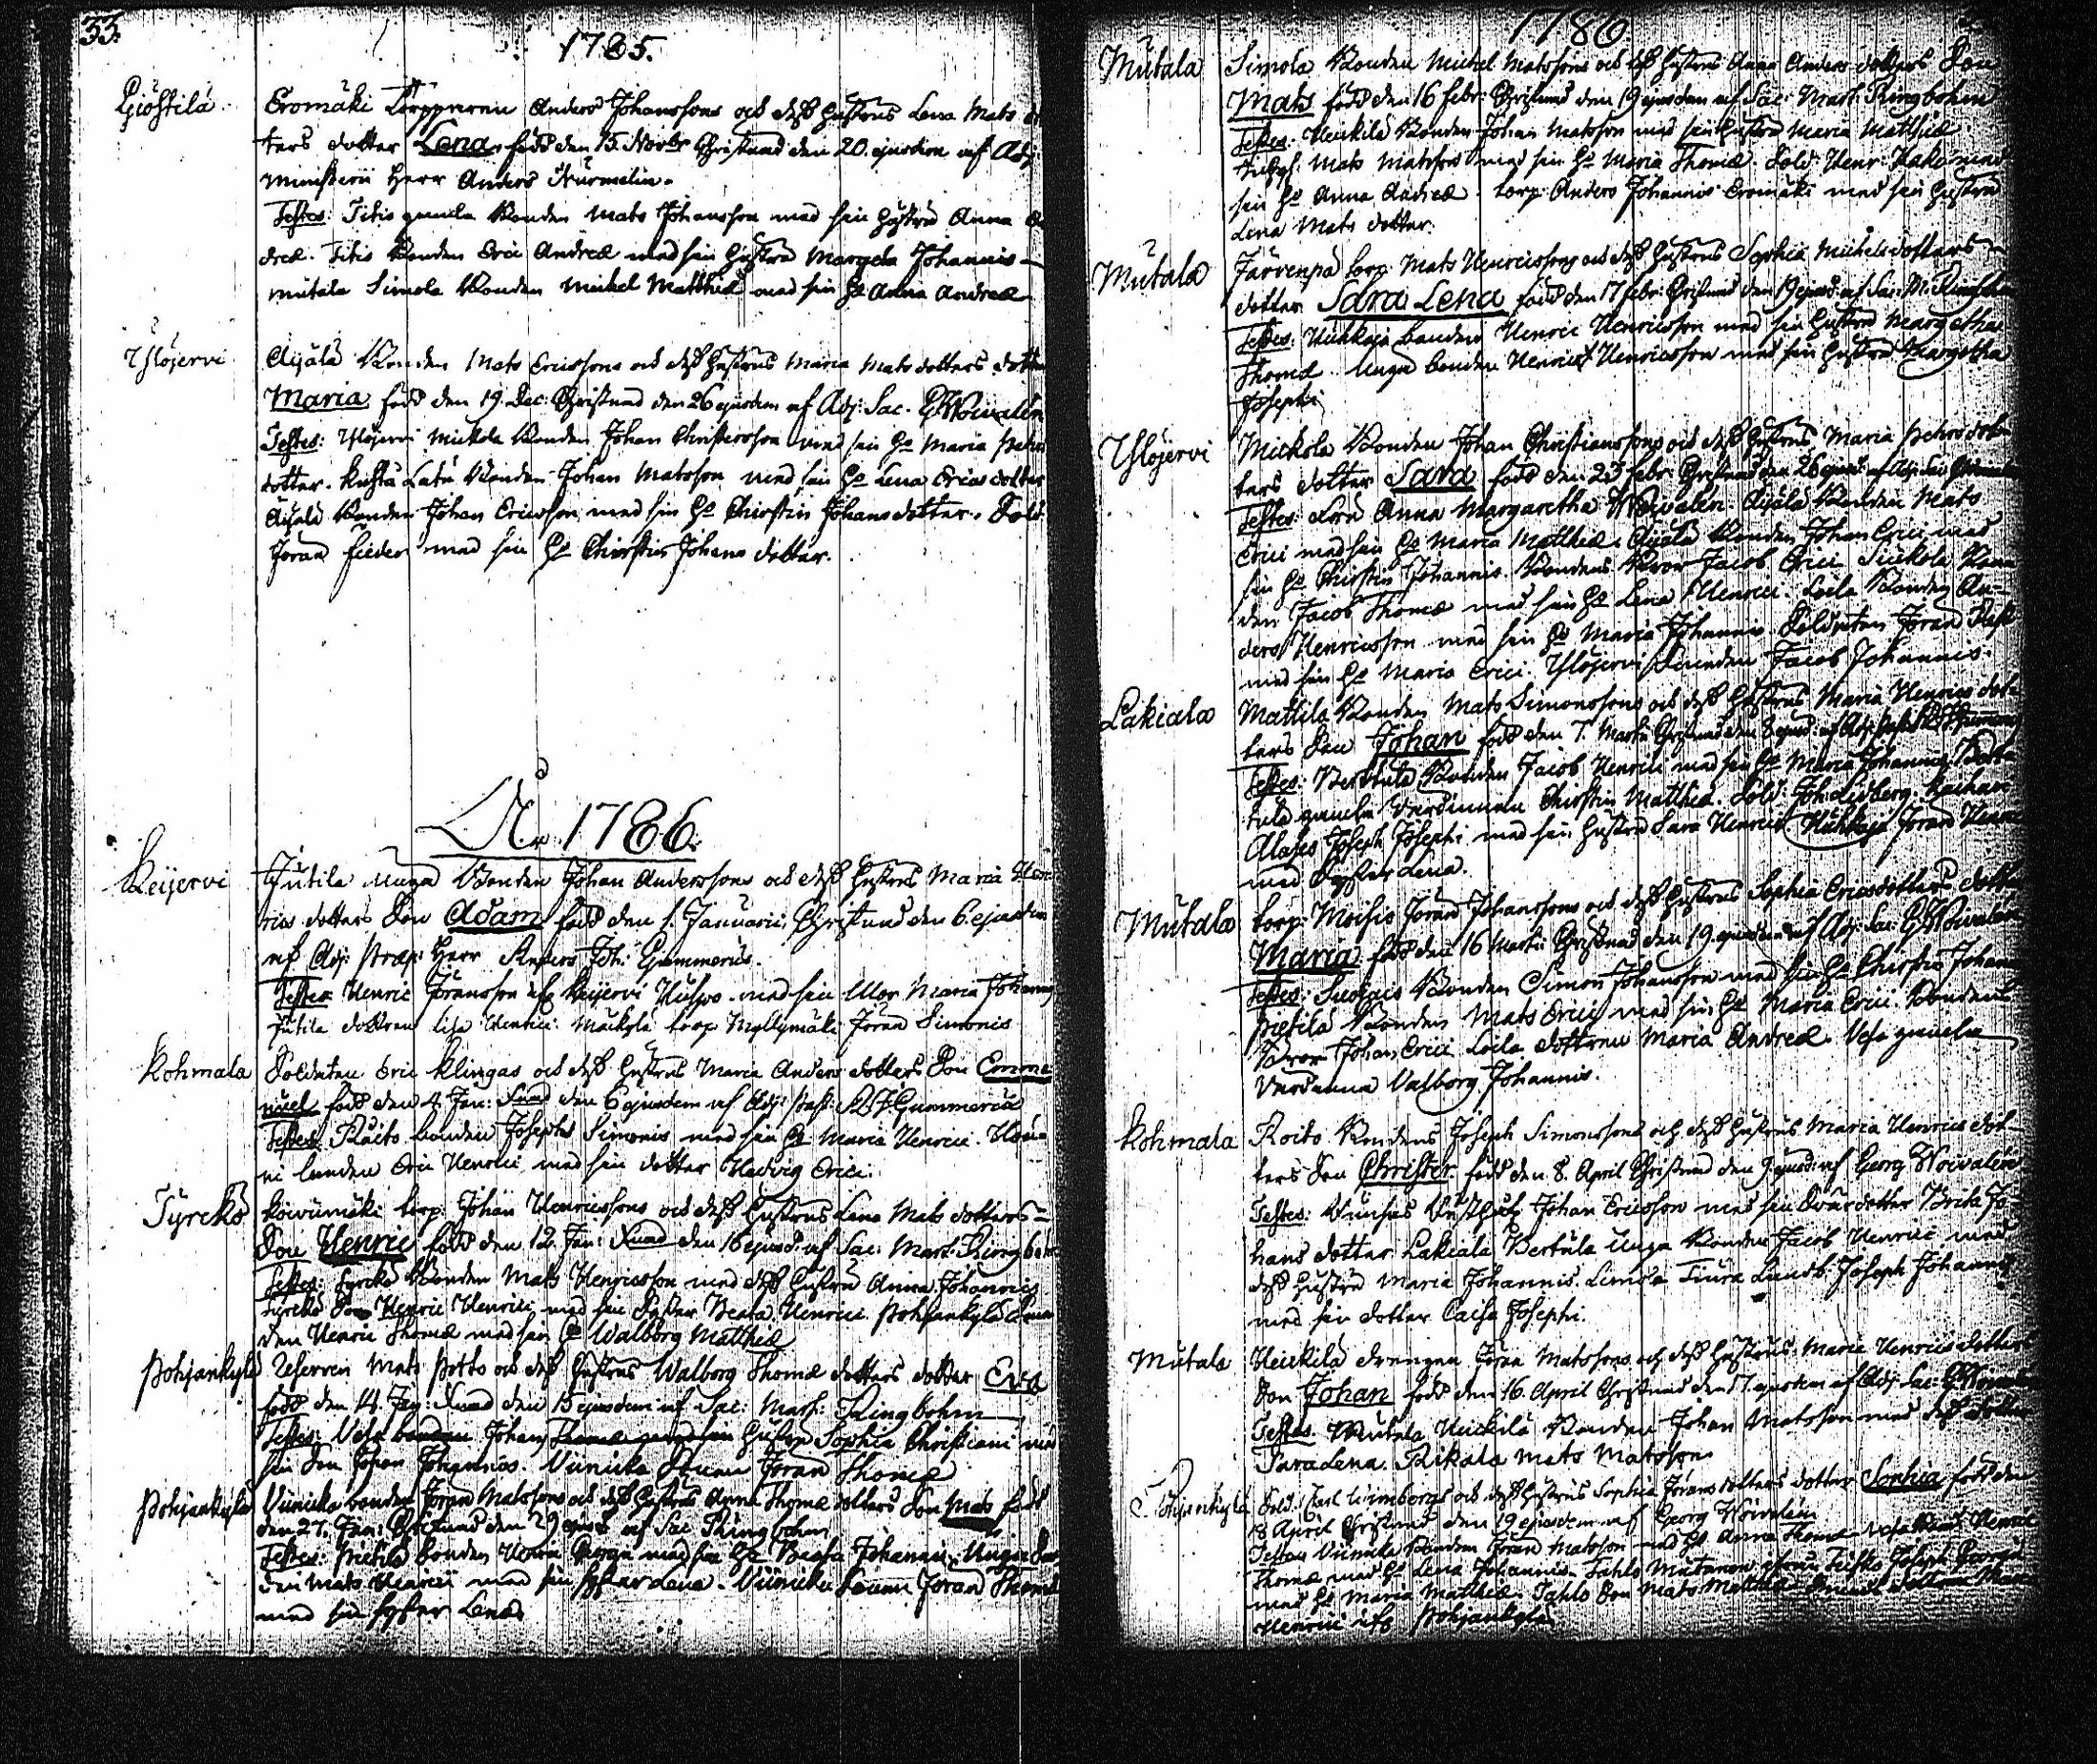 33.
1785.
Giöttilä
Eromäki Torpparen Anders Johanssons och deß hustrus Lena Mats
ters dotter Lena född den 15. Novbr Christnad den 20. ejusdem af Adj:
Ministerii Herr Anders Nurmelin.
Testes: Titis gamla Bonden Mats Johansson med sin hustru Anna
dreæ. Titis Bonden Eric Andreæ med sin hustru Margeta Johannis
Mutala Simola Bonden Michel Matthiæ med sin Ho Anna Andreæ
Ylöjervi
Äijälä Bonden Mats Ericssons och deß hustrus Maria Mats dotters dotter
Maria född den 19. Dec: Christnad den 26 ejusdem af Adj: Sac. G Woivalén
Testes: Ylöjervi Mickola Bonden Johan Christersson med sin Ho Maria Petri
dotter. Kuttä Latu Bonden Johan Matsson med sin Ho Lena Erics dotter
Äijälä Bonden Johan Ericsson med sin Ho Chirstin Johans dotter. Sold:
Jöran med sin Ho Chirstin Johans dotter.
Ao 1786.
Keijervi
Jutila unga Bonden Johan Anderssons och deß hustrus Maria Hen
rics dotters Son Adam född den 1. Januarii, Christnad den 6 ejusdem
af Adj: Præp: Herr Anders Joh: Gummerus.
Testes Henric Jöransson ifrå Keijervi med sin Mor Maria Johannis
Jutila dottren Lisa Henrici. Mäckylä torp Myllymäki Jöran Simonis
Kohmala
Soldaten Eric Klingas och deß hustrus Maria Anders dotters Son Emma
nuel född den 4. Jan: den 6 ejusdem af Adj: Past: A J Gummerus
Testes Räito bonden Joseph Simonis med sin Ho Maria Henrici.
bonden Eric Henrici med sin dotter Hedvig Erici.
Tyrckö
Koivumäki torp: Johan Henricssons och deß hustrus Lena Mats dotters
Son Henric född den 12. Jan: den 16 ejusd: af Sac: Mart: Ringbohm
Testes: Tyrckö Bonden Mats Henricsson med deß hustru Anna Johannis
Tyrckö Son Henric Henrici med sin Syster Beata Henrici. Pohjankylä Bon
den Henric Thomæ med sin Ho Walborg Matthiæ
Pohjankylä
Reserven Mats Potto och deß hustrus Walborg Thomæ dotters dotter Eva
född den 14. Jan: den 15 ejusdem af Sac: Mart: Ringbohm
Testes: Vesa Johan hustru Sophia Christiani
sin Son Johan Johannis. Viinicka Jöran Thomæ
Pohjankylä
Viinicka bonden Jöran Matssons och deß hustrus Anna Thomæ dotters Son Mats född
den 27. Jan: Christnad den 29 ejusd: af Sac Ringbohm
Testes: Pietilä bonden Henric Georgii med sin Ho Beata Johannis. Unga bon
den Mats Henrici med sin Syster Lena. Viinicka Jöran Thomæ
med sin Syster Lena.
1786.
Mutala
Simola Bonden Michel Matssons och deß hustrus Anna Anders dotters Son
Mats född den 16 febr: Christnad den 19 ejusdem af Sac: Mart: Ringbohm
Testes: Heickilä Bonden Johan Matsson med sin hustru Maria Matthiæ
Mats Matsson med sin Ho Maria Thomæ. Sold: Henr: Kako med
sin Ho Anna Andreæ. torp: Anders Johannis Eromäki med sin hustru
Lena Mats dotter.
Mutala
Järvenpä torp: Mats Henricssons och deß hustrus Sophia Michels dotters
dotter Sara Lena född den 17 febr: Christnad den 19 ejusd: af Sac: M: Ringbohm
Testes: Uuhkaja bonden Henric Henricsson med sin hustru Margetha
Thomæ. Unga bonden Henric Henricsson med sin hustru Margetha
Josephi
Ylöjervi
Mickola Bonden Johan Christianssons och deß hustrus Maria Petrs dot
ters dotter Sara född den 23 febr: Christnad den 26 ejusd: af Adj: Sac
Testes: Anna Margaretha Woivalén. Äijälä Bonden Mats
Erici med sin Ho Maria Matthiæ. Äijälä Bonden Johan Erici med
sin Ho Chirstin Johannis. Bondens Bror Jacob Erici Sickola Bon
den Jacob Thomæ med sin Ho Lena Henrici. Loila Bonden An=
ders Henricsson med sin Ho Maria Johannis. Soldaten Jöran Rask
med sin Ho Maria Erici. Ylöjervi Jacob Johannis.
Lakiala
Mattila Bonden Mats Simonssons och deß hustrus Maria Henrics dot
ters Son Johan född den 7. Martii Christnad den 8 ejusd: af Adj:
Testes: Bertula Bonden Jacob Henrici med sin Ho Maria Johannis, Ber
tula gamla Värdinnan Chirstin Matthiæ. Sold: Joh: Ledberg. Keihäs
Alases Joseph Josephi med sin hustru Sara Henrici. Uuhkaja Jöran
med Syster Lena.
Mutala
torp: Moisio Jöran Johanssons och deß hustrus Sophia Ericsdotters dotter
Maria född den 16 Martii Christnad den 19. ejusdem af Adj: Sac: G Woivalén
Testes: Suojais Bonden Simon Johansson med sin Ho Chirstin Johan
Pietilä Bonden Mats Erici med sin Ho Maria Erici. Bondens
Bror Johan Erici Loila dottren Maria Andreæ. Vesa gamla
Värdinna Valborg Johannis.
Kohmala
Roito Bondens Joseph Simonssons och deß hustrus Maria Henrics dot
ters Son Christer född den 8. April Christnad den 9. ejusd: af Georg Woivalén
Testes: Johan Ericsson med sin Svärdotter Brita Jo
hans dotter Lakiala Bertula Unga Bonden Jacob Henrici med
deß hustru Maria Johannis. Limola Tiura Joseph Johannis
med sin dotter Caisa Josephi.
Mutala
Heickilä drengen Jöran Matssons och deß hustrus Maria Henrics dotters
Son Johan född den 16. April Christnad den 17. ejusdem af Adj: Sac: G Woivalén
Testes. Mutala Heickilä Bonden Johan Matsson med deß dotter
Sara Lena. Rikala Mats Matsson
Pohjankylä
Sold: Carl Wimborgs och deß hustrus Sophia Jörans dotters dotter Sophia född den
18 April Christnad den 19 ejusdem af Georg Woivalén
Testes Viinicka Bonden Jöran Matsson med Ho Anna Thomæ Vesa Henric
Thomæ med Ho Lena Johannis. Tahlo Joseph Georgii
med Ho Maria Matthiæ. Tahlo Son Mats Matthiæ
Henrici ifrå Pohjankylä